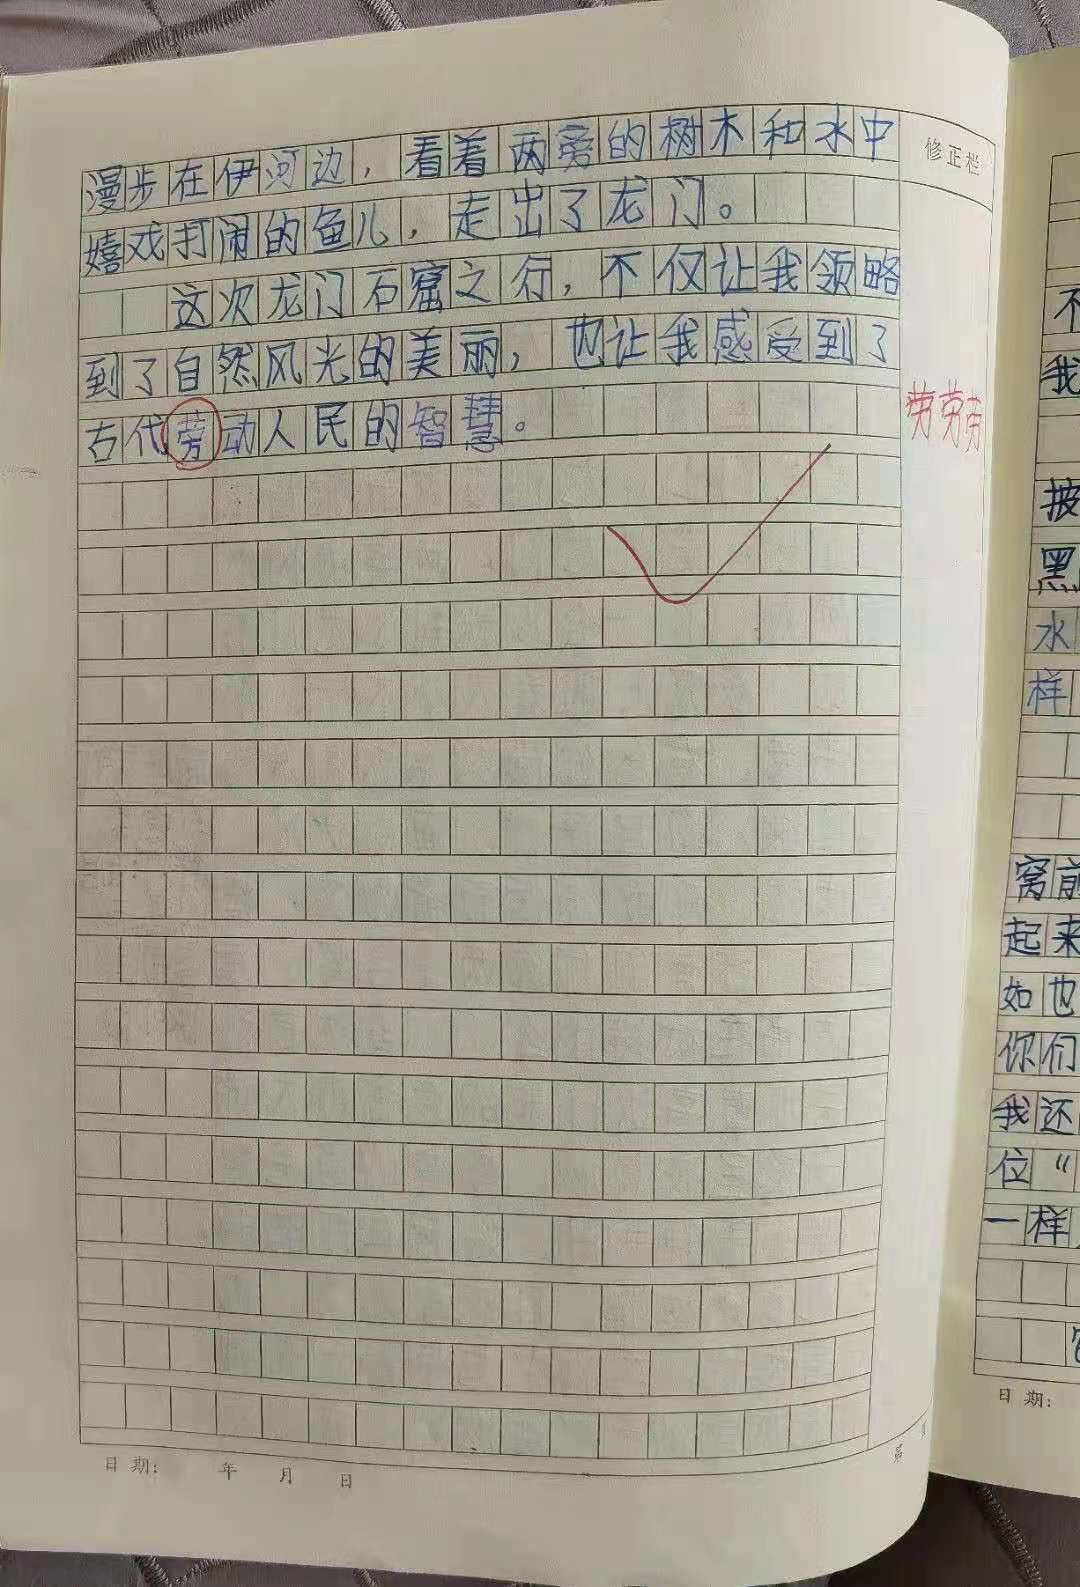 漫步在伊河边，看着两旁的树木和水中
嬉戏打闹的鱼儿，走出了龙门。
这次龙门石窟之行，不仅让我领略
到了自然风光的美丽，也让我感受到了
古代劳动人民的智慧。
修正栏
劳劳劳
日期： 年 月 日
不
我
披
黑
水
样
窝前
起来
如也
你们
我还
位“
一样
日期：